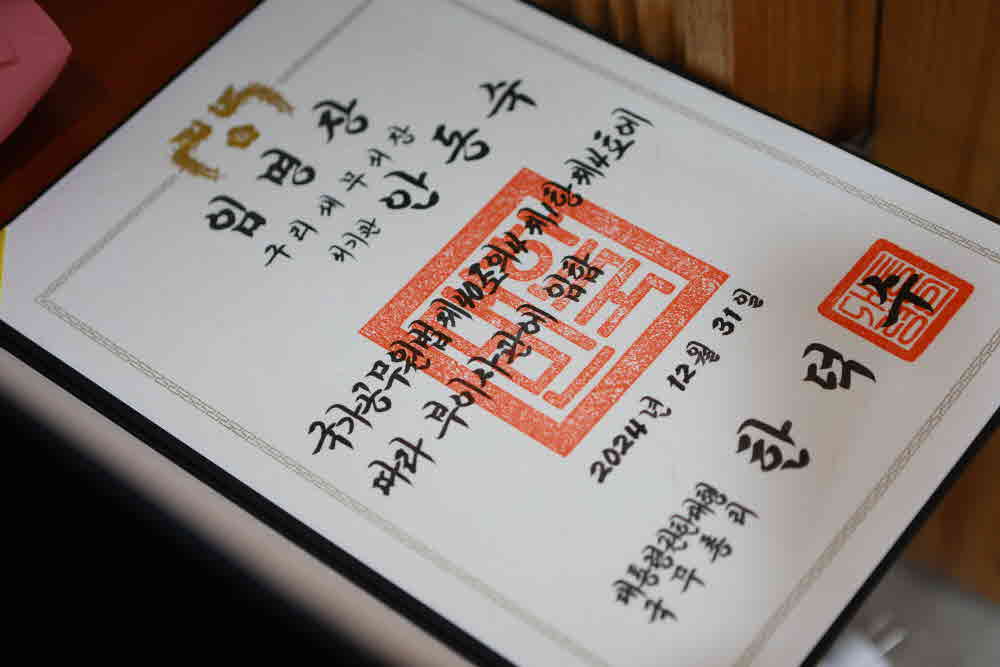 임명장
구리세무서장
서기관 안동수
국가공무원법 제40조의4 제1항 제4호에
따라 부이사관에 임함
2024년 12월 31일
대통령권한대행
국무총리 한덕수
대한민국